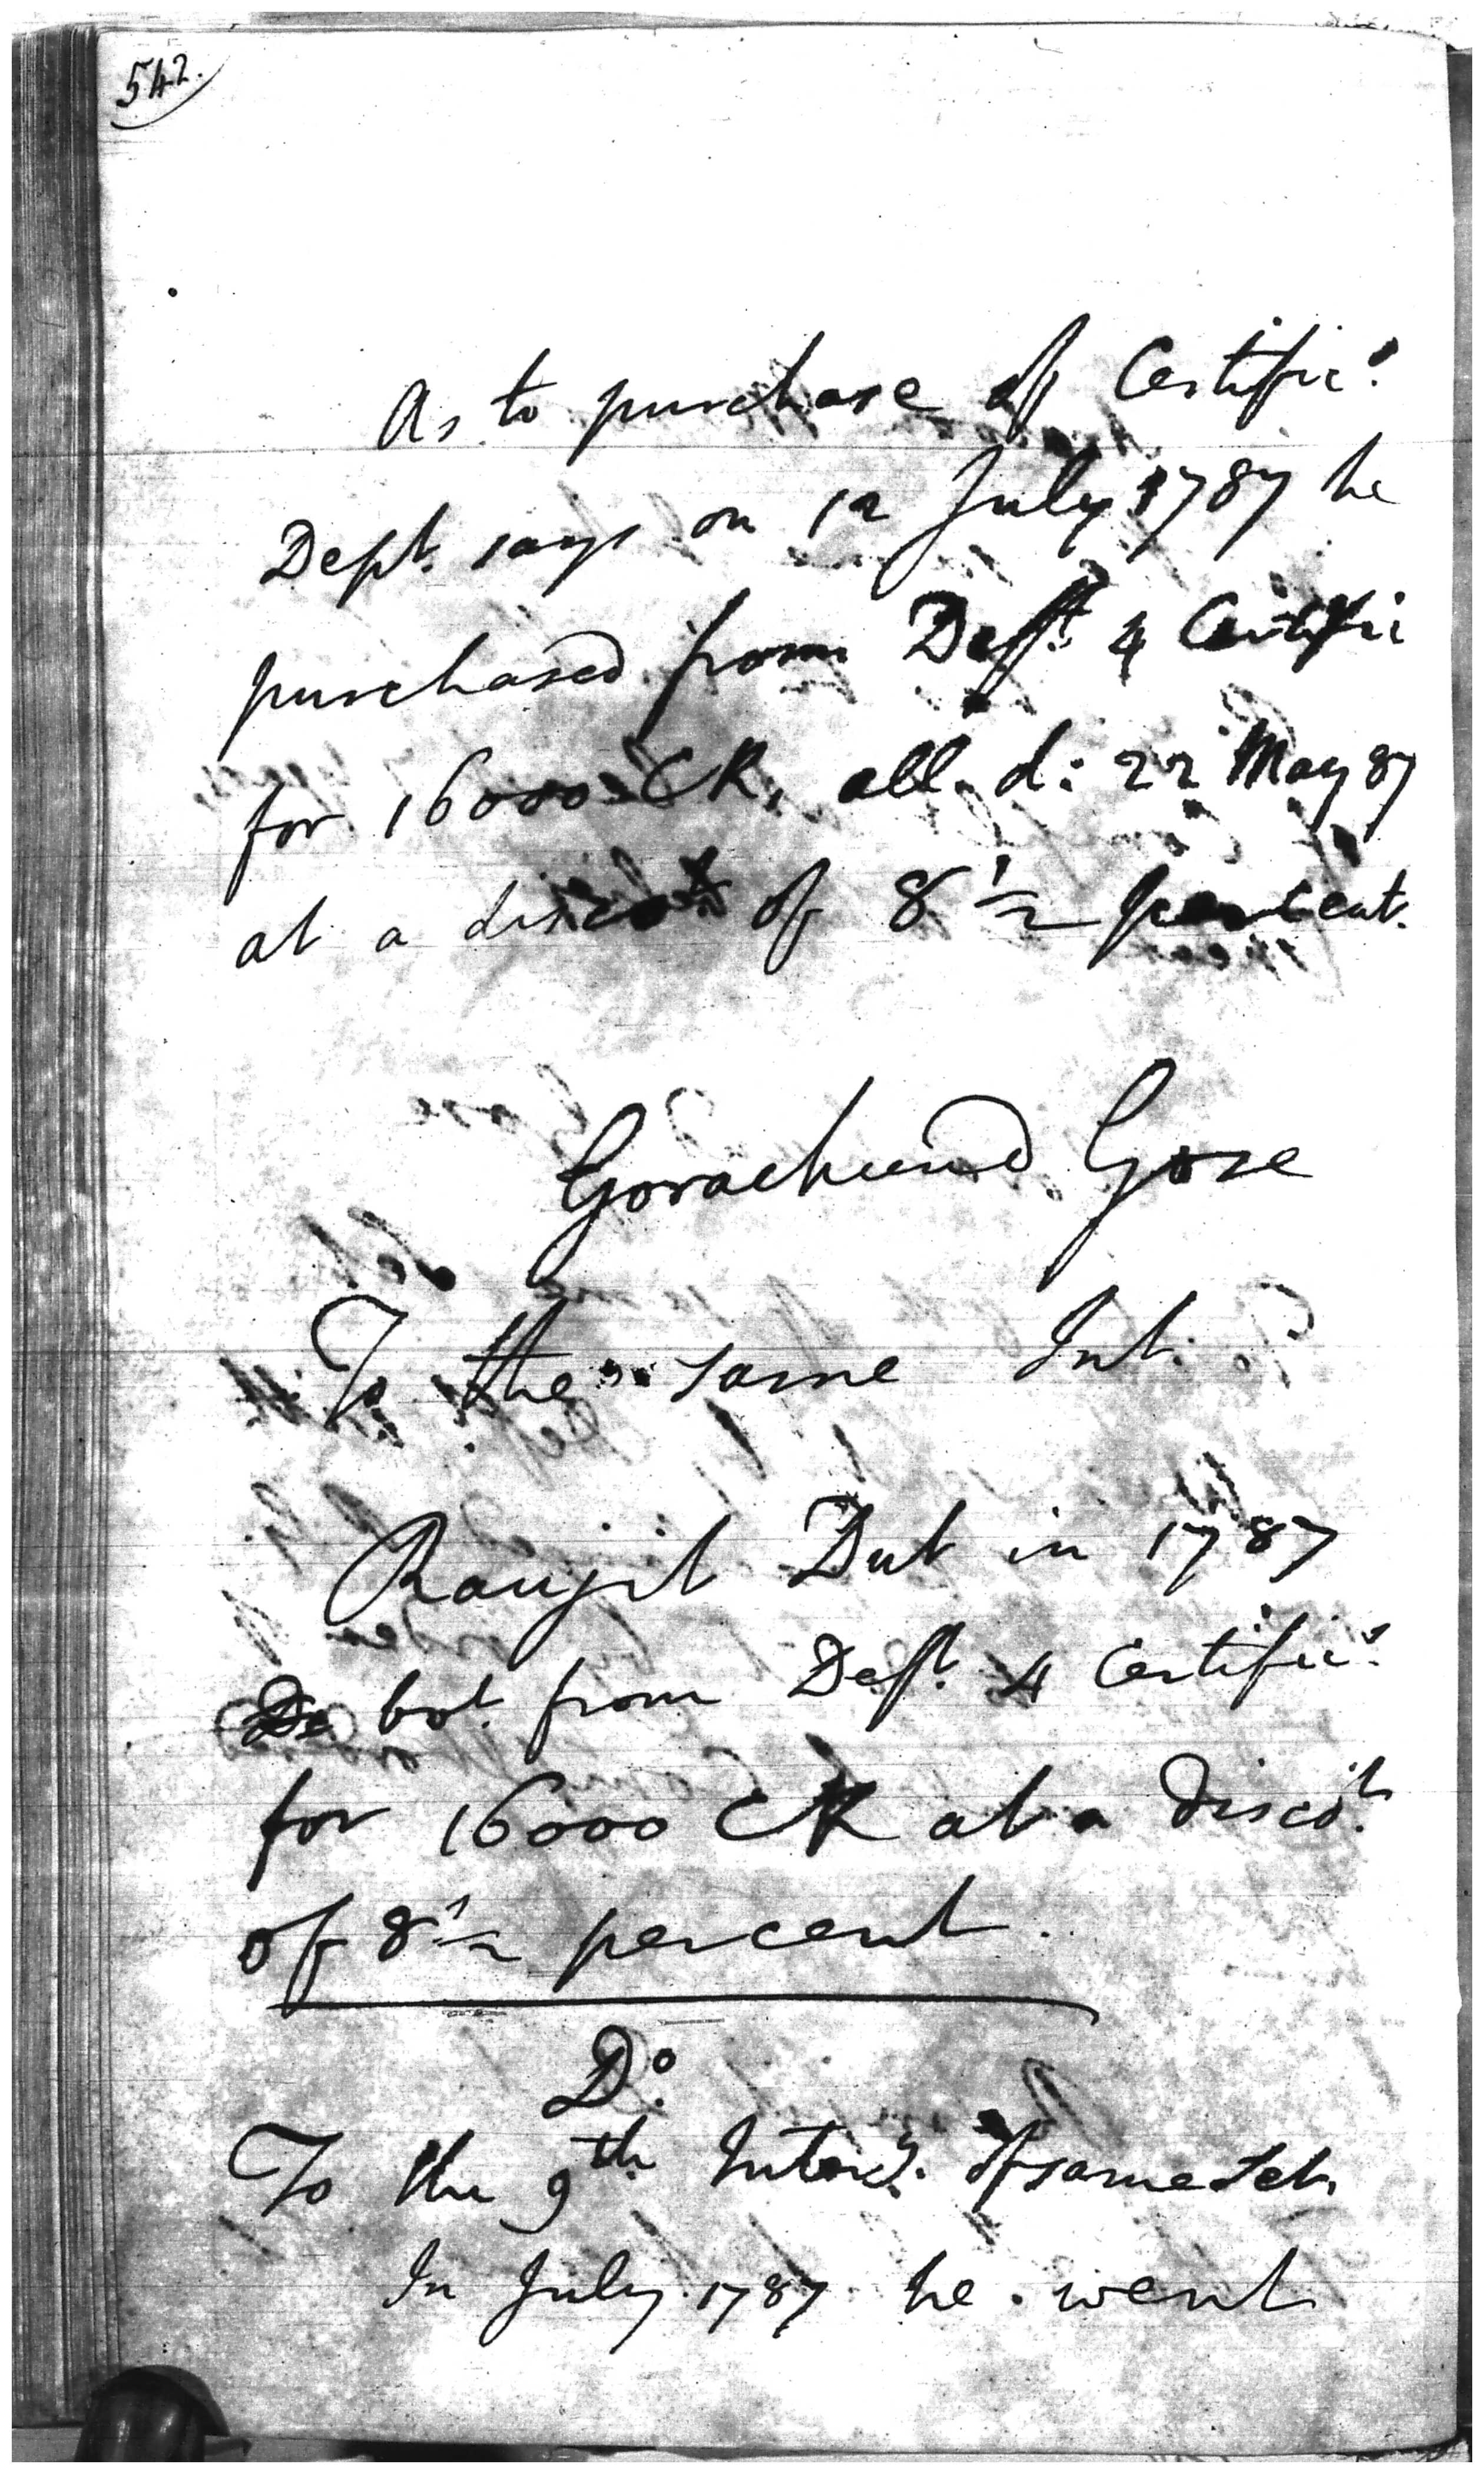 542.
As to purchase of Certific.s
Dept. says on 12 July 1787 he
purchased from Deft. 4 Certific
for 16000 CR, all d: 22 May 87
at a disco.t of 8 1/2 percent.
Gorachund Gose
To the same Int.
Ranjit Dut in 1787
bot. from Deft. 4 Certific.s
for 16000 CR at a disco.t
of 8 1/2 percent.
Do.
To the 9th Interr.y of same Set.
In July 1787 he went